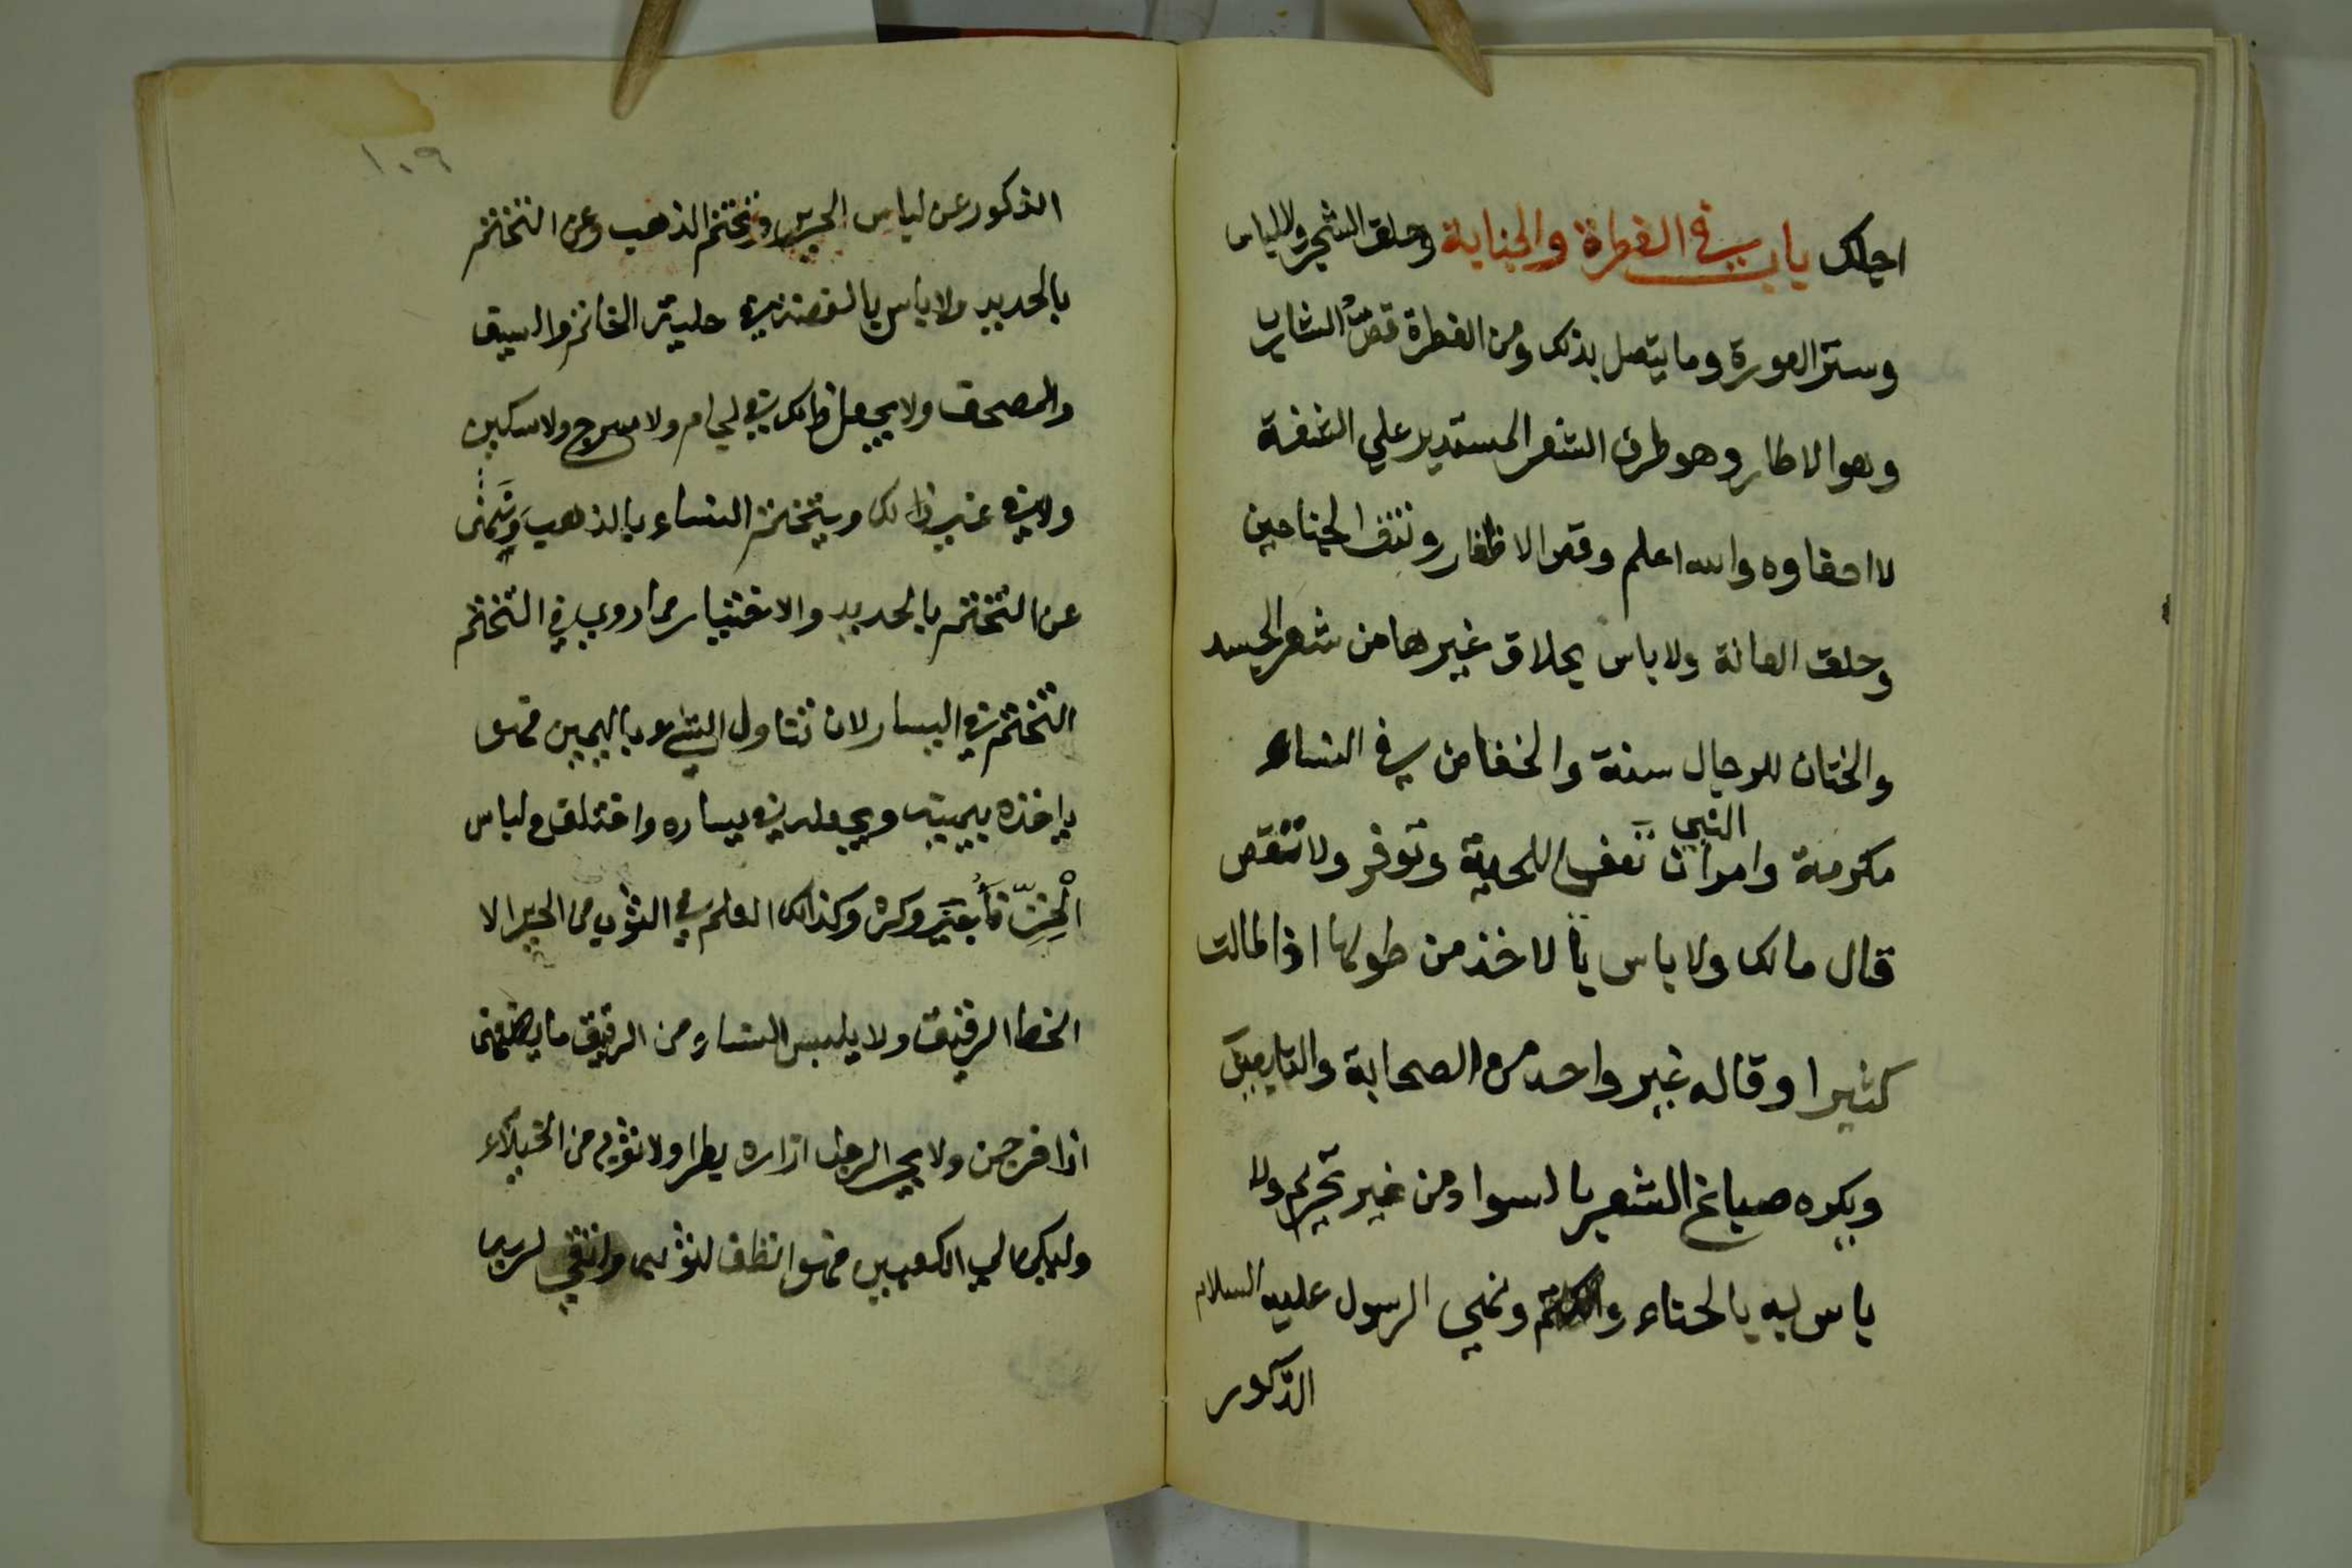 اجلك باب في الفطرة والجناية وحلق الشجر واللباس
وستر العورة وما يتصل بذلك ومن الفطرة قص الشارب
وهو الاطار وهو طرف الشعر المستدير علي الشفة
لا احفاوه والله اعلم وقص الاظفار ونتف الجناحين
وحلق العانة ولا باس بحلاق غيرها من شعر الجسد
والختان للرجال سنة والخفاض في النساء
مكرمة وامر النبي ان تعفى اللحية وتوفر ولا تنقص
قال مالك ولا باس بالاخذ من طولها اذا طالت
كثيرا وقاله غير واحد من الصحابة والتابعين
ويكره صباغ الشعر بالسواد من غير تحريم ولا
باس به بالحناء والكتم ونهي الرسول عليه السلام
الذكور
١٠٩
الذكور عن لباس الحرير وتختم الذهب وعن التختم
بالحديد ولا باس بالفضة في حلية الخاتم والسيف
والمصحف ولا يجعل ذالك في لجام ولا سرج ولا سكين
ولا في غير ذالك ويتختم النساء بالذهب ونهى
عن التختم بالحديد والاختيار مما روي في التختم
التختم في اليسار لان تناول الشيء باليمين فهو
ياخذه بيمينه ويجعله في يساره واختلف في لباس
الْخزّ فأجيز وكره وكذالك العلم في الثوب من الحرير الا
الخط الرقيق ولا يلبس النساء من الرقيق ما يصفهن
اذا خرجن ولا يجر الرجل ازاره بطرا ولا ثوبه من الخيلاء
وليكن الي الكعبين فهو انظف لثوبه واتقي لربه